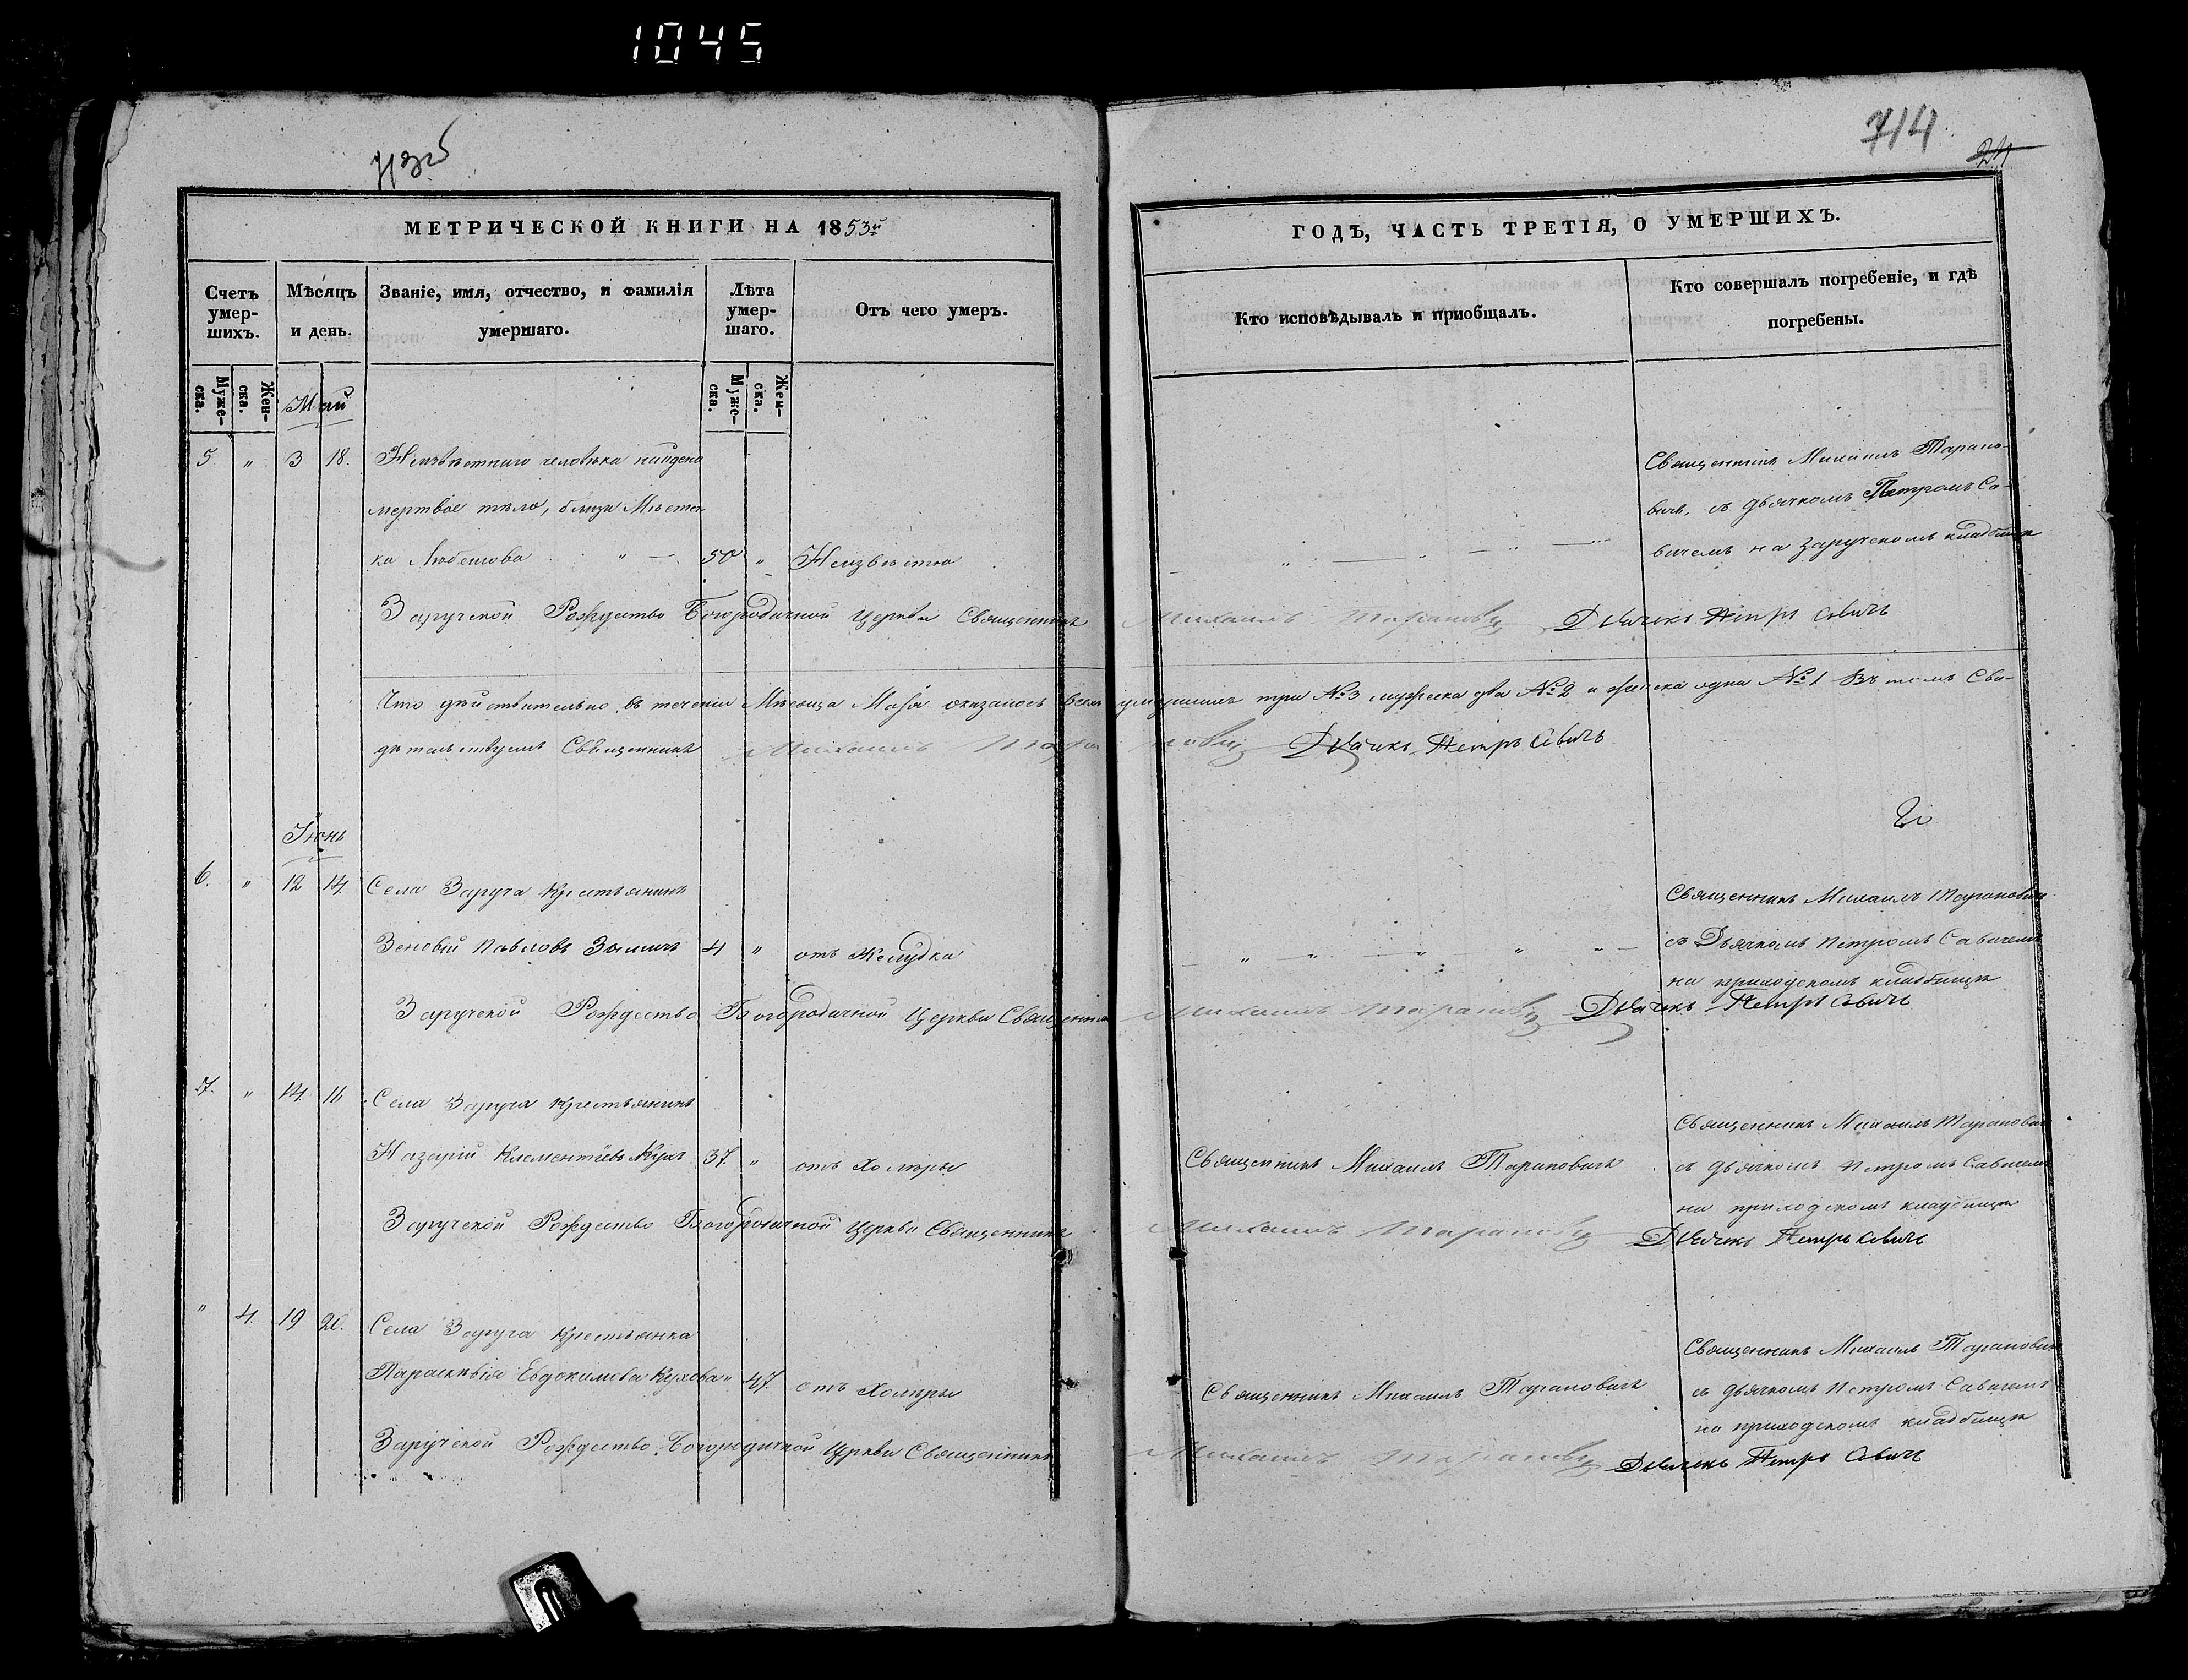 1045
713об
714
24
МЕТРИЧЕСКОЙ КНИГИ НА 1853й
ГОДЪ, ЧАСТЬ ТРЕТІЯ, О УМЕРШИХЪ.
Счетъ умер-шихъ.
Мѣсяцъ и день.
Званіе, имя, отчество, и фамилія умершаго.
Лѣта умер-шаго.
Отъ чего умеръ.
Кто исповѣдывалъ и приобщалъ.
Кто совершалъ погребеніе, и гдѣ погребены.
Муже-ска.
Жен-ска.
Муже-ска.
Жен-ска.
Май
5 " 3 18. Неизвѣстнаго человѣка найдено
мертвое тѣло, близи Мѣстеч
ка Любешова " — 50 " Неизвѣстно
Священникъ Михаилъ Тарано-
вичъ, съ дьячкомъ Петромъ Са-
вичемъ на Заручскомъ кладбищѣ
Заручской Рождество Богородичной Церкви Священникъ Михаилъ Тарановичъ Дьячекъ Петръ Савичъ
Что дѣйствительно въ теченіи Мѣсяца Маія оказалось всехъ умершихъ три №3 мужеска два №2 и женска одна №1 Въ томъ Сви-
дѣтельствуемъ Священникъ Михаилъ Тарановичъ Дьячекъ Петръ Савичъ
Іюнь
6. " 12 14. Села Заруча Крестьянинъ
Зеновій Павловъ 4 " отъ Желудка
Священникъ Михаилъ Тарановичъ
съ Дьячкомъ Петромъ Савичемъ
на приходскомъ кладбищѣ
Заручской Рождество Богородичной Церкви Священникъ Михаилъ Тарановичъ Дьячекъ Петръ Савичъ
7. " 14. 16 Села Заруча Крестьянинъ
Назарій Клементіевъ Кухъ 37. " отъ Холеры
Священникъ Михаилъ Тарановичъ
Священникъ Михаилъ Тарановичъ
съ дьячкомъ Петромъ Савичемъ
на приходскомъ кладбищѣ
Заручской Рождество Богородичной Церкви Священникъ Михаилъ Тарановичъ Дьячекъ Петръ Савичъ
" 4. 19 Села Заруча Крестьянка
Параскевія Евдокимова Кухова " 47. отъ Холеры
Священникъ Михаилъ Тарановичъ
Священникъ Михаилъ Тарановичъ
съ дьячкомъ Петромъ Савичемъ
на приходскомъ кладбищѣ
Заручской Рождество Богородичной Церкви Священникъ Михаилъ Тарановичъ Дьячекъ Петръ Савичъ